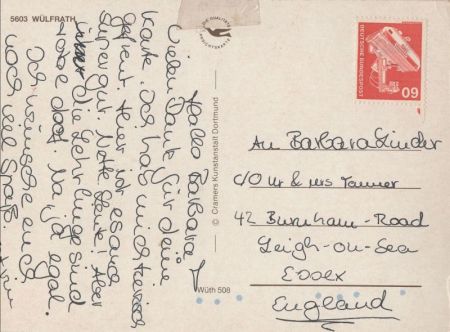 5603 WÜLFRATH
Hallo Barbara!
Vielen Dank für deine
Karte. Ich hab mich riesich
gefreut. Hier ist es auch
super gut. Nette Leute! Aber
die Lehrlinge sind
doof. Na ja, egal.
Ich wünsche euch
noch viel Spaß.
© Cramers Kunstanstalt Dortmund
Wüth 508
DEUTSCHE BUNDESPOST
60
An Barbara Linder
c/o Mr & Mrs Tanner
42 Burnham-Road
Leigh-on-Sea
Essex
England